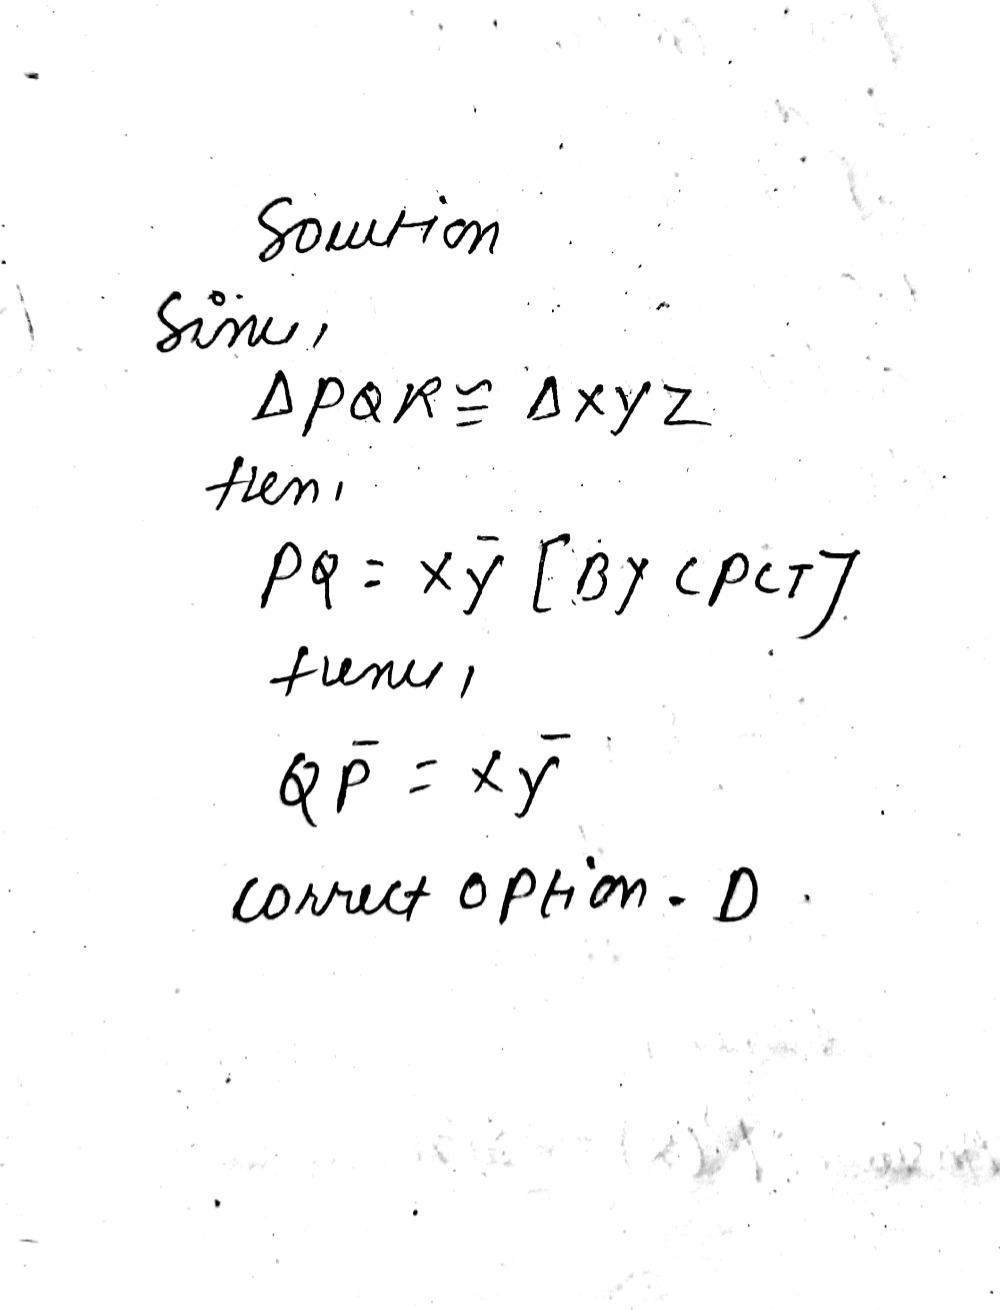 Solution
Since,
Δ PQR ≅ Δ XYZ
then,
PQ = XȲ [By CPCT]
Hence,
QP̄ = XȲ
correct option - D.